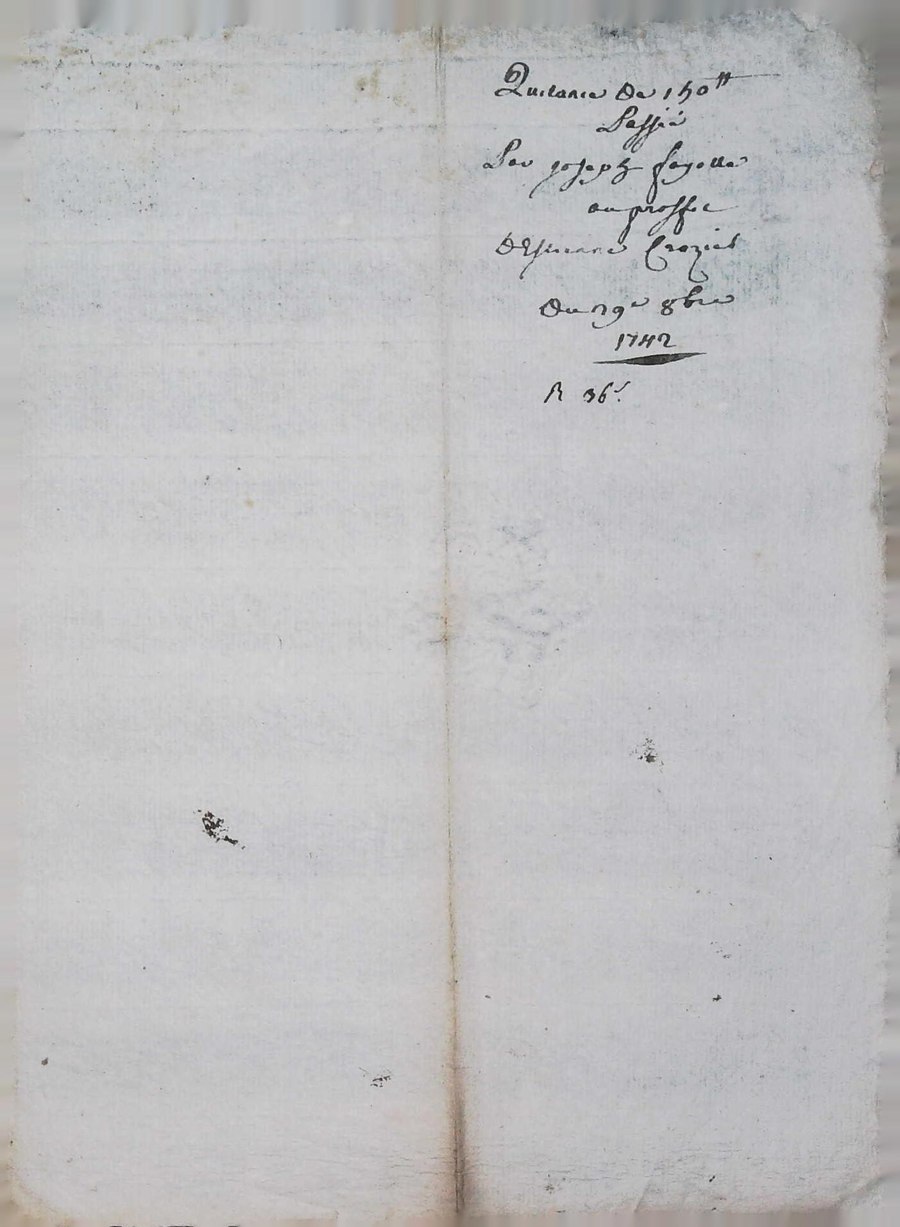 Quitance de 150 ₶
Passée
Par joseph fayolle
au proffit
d'Estienne Croziet
du 29e 8bre
1742
R 36 s.